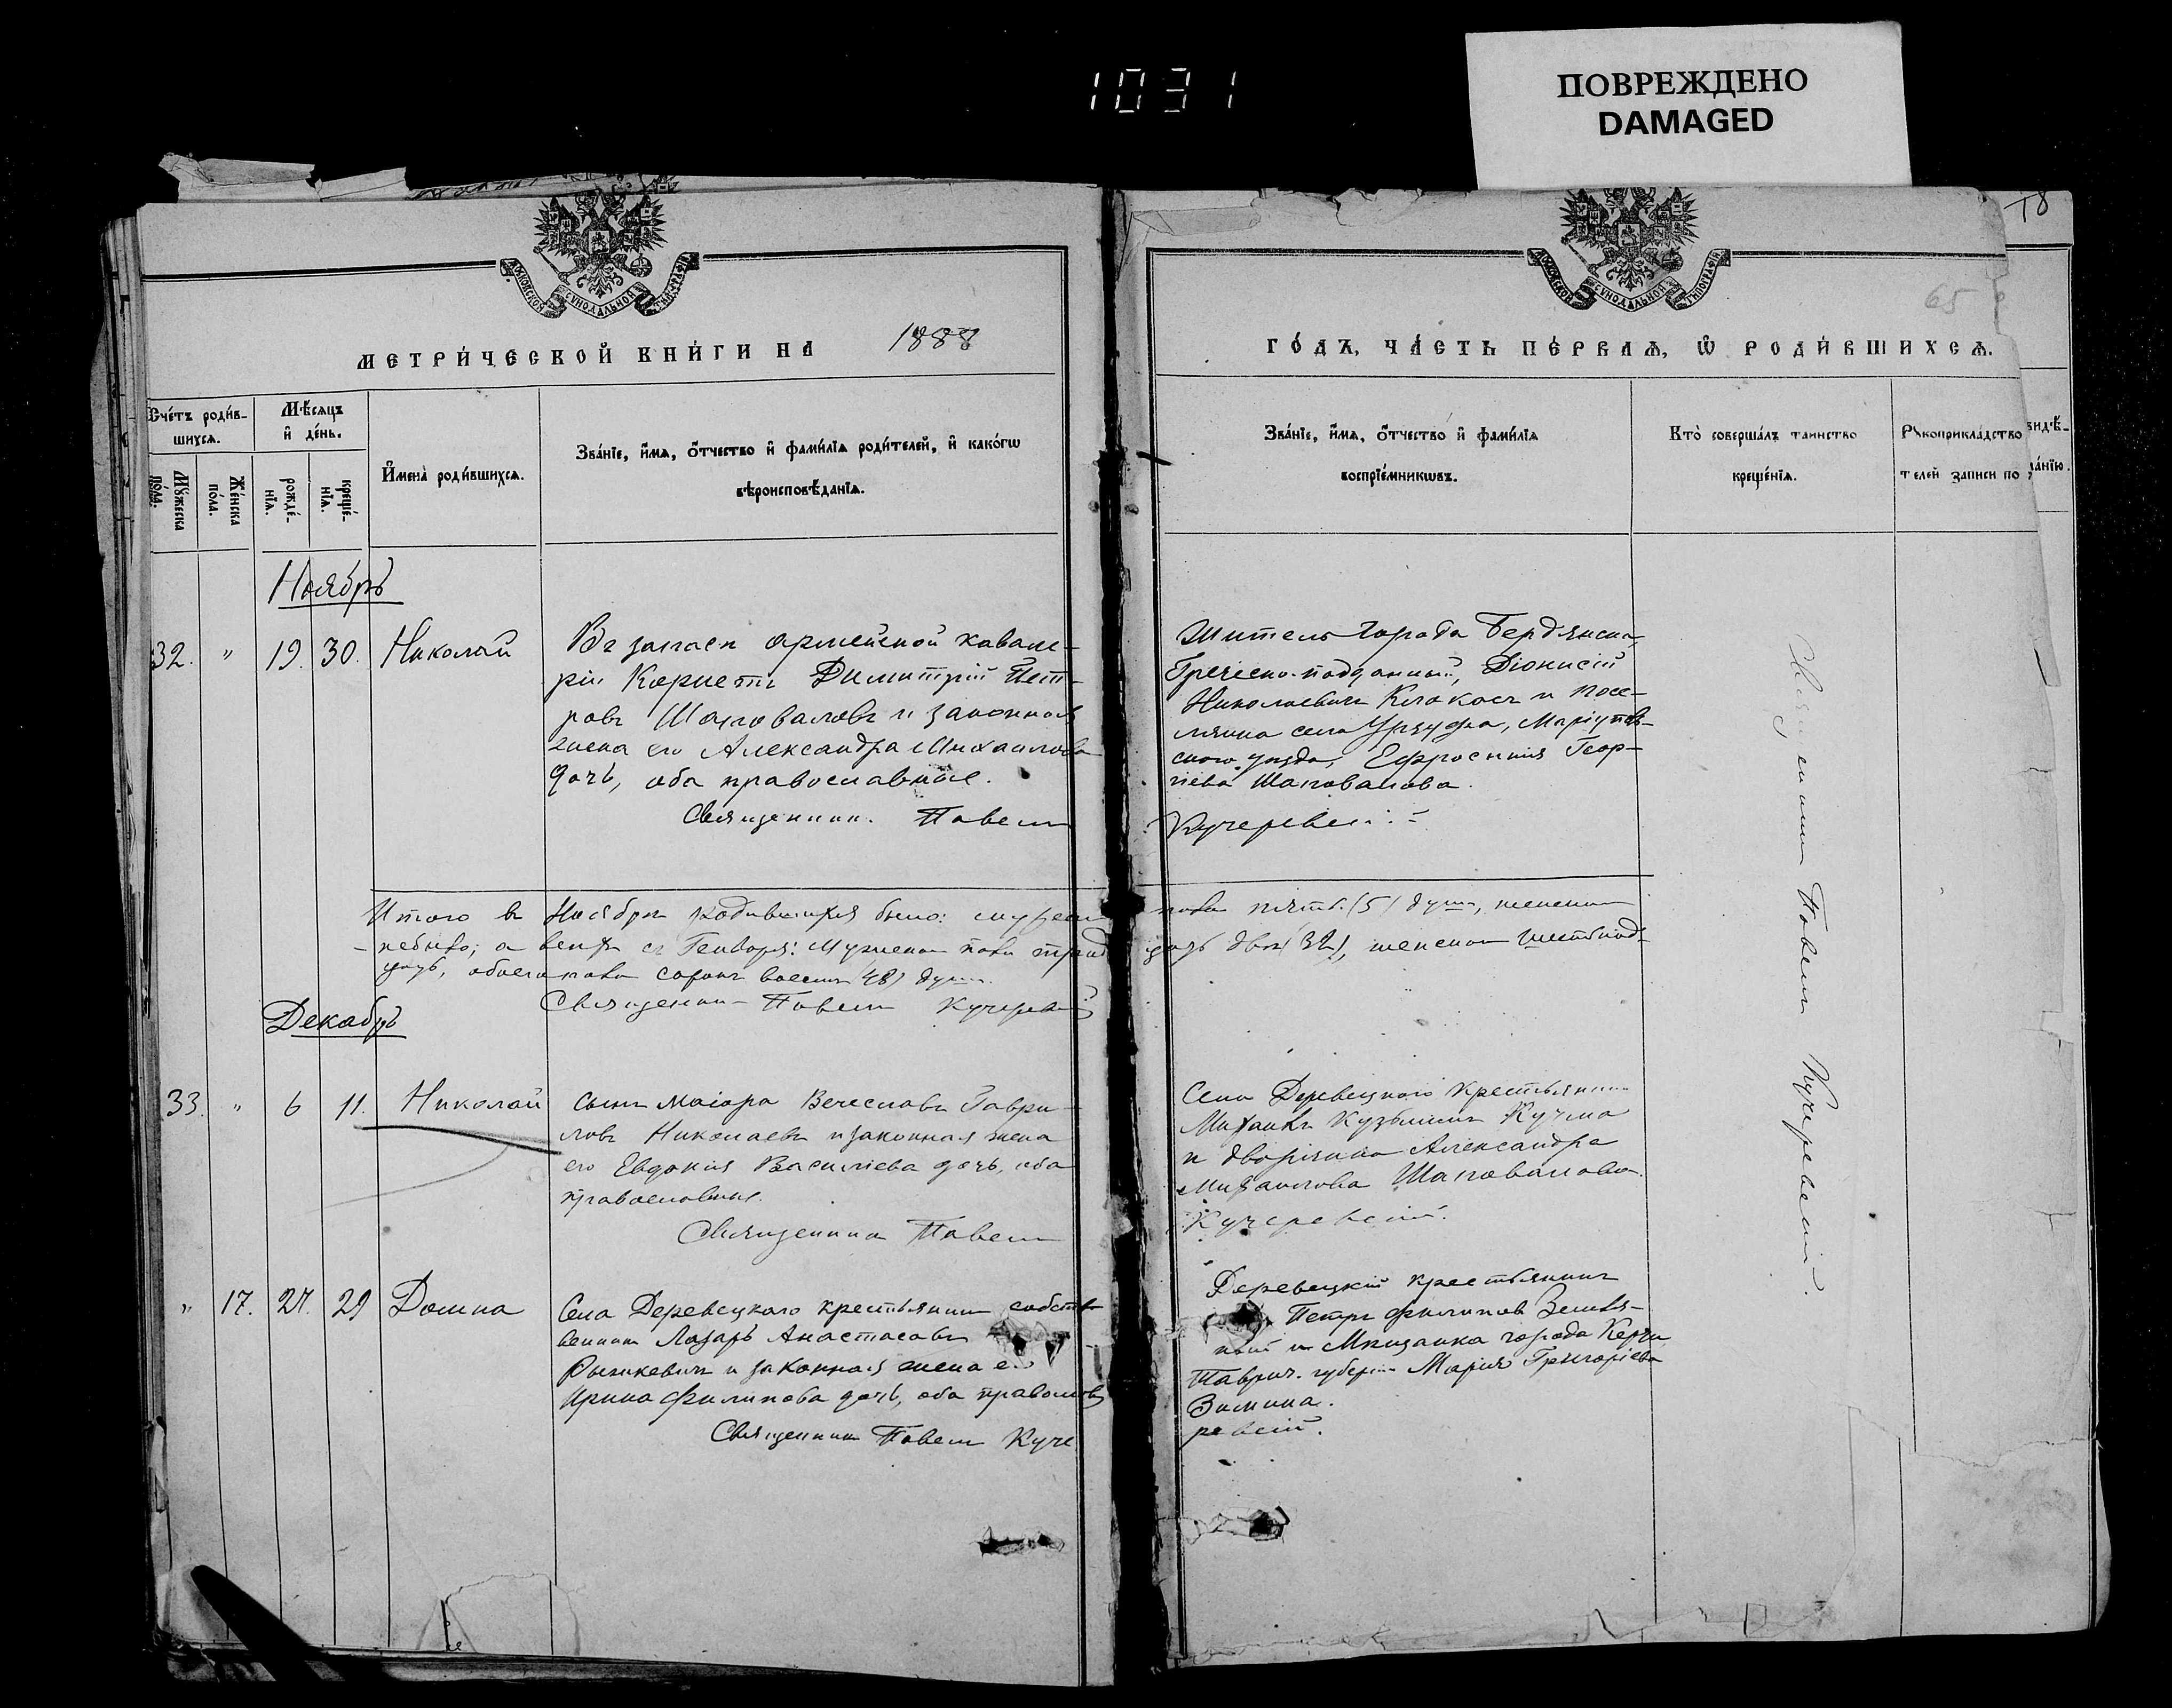 1031
ПОВРЕЖДЕНО
DAMAGED
18
65
МОСКОВСКОЙ СѴНОДАЛЬНОЙ ТИПОГРАФІИ
МОСКОВСКОЙ СѴНОДАЛЬНОЙ ТИПОГРАФІИ
МЕТРИ́ЧЕСКОЙ КНИ́ГИ НА 1888
ГО́ДЪ, ЧА́СТЬ ПЕ́РВАѦ, Ѡ҆ РОДИ́ВШИХСѦ.
Сче́тъ роди́в-
шихсѧ.
Мꙋ́жеска
по́ла.
Же́нска
по́ла.
Мѣ́сѧцъ
и҆ де́нь.
рожде́-
нїѧ.
креще́-
нїѧ.
И҆мена̀ роди́вшихсѧ.
Зва́нїе, и҆́мѧ, о҆́тчество и҆ фами́лїѧ роди́телей, и҆ како́гѡ
вѣроисповѣ́данїѧ.
Зва́нїе, и҆́мѧ, о҆́тчество и҆ фами́лїѧ
воспрїе́мникѡвъ.
Кто̀ соверша́лъ таинство
креще́нїѧ.
Рꙋкоприкла́дство
телей записи по
видѣ́-
ла́нїю.
Ноябрь
32. " 19. 30. Николай
Въ запасѣ армейской кавале-
ріи Корнетъ Димитрій Пет-
ровъ Шаповаловъ и законная
жена его Александра Михаилова
дочь, оба православные.
Священникъ Павелъ
Житель города Бердянска,
Греческо-подданный, Діонисій
Николаевичъ и посе-
лянка села Урзуфа, Маріуполь-
скаго уѣзда, Ефросинія Геор-
гіева Шаповалова.
Кучеревскій
Итого въ Ноябрѣ родившихся было: мужеска пола пять (5) душъ, женска
-небыло; а всѣхъ съ Генваря: Мужеска пола тридцать два (32), женска шестнад-
цать, обоего пола сорокъ восемь (48) душъ.
Священникъ Павелъ Кучеревскій
Декабрь
33. " 6 11. Николай
Сынъ Маіора Вечеславъ Гаври-
ловъ Николаевъ и законная жена
его Евдокія Василіева дочь, оба
православные.
Священникъ Павелъ
Села Деревецкаго крестьянинъ
Михаилъ Кузьминъ Кучма
и дворянка Александра
Михаилова Шаповалова.
Кучеревскій.
" 17. 27. 29 Домна
Села Деревецкаго крестьянинъ собств-
венникъ Лазарь Анастасовъ
и законная жена его
Ирина Филипова дочь, оба православ
Священникъ Павелъ Куче
Деревецкій крестьянинъ
Петръ Филиповъ
и Мѣщанка города Керчи
Таврич. губерніи Марія Григоріева
Зимина.
ревскій.
Священникъ Павелъ Кучеревскій.